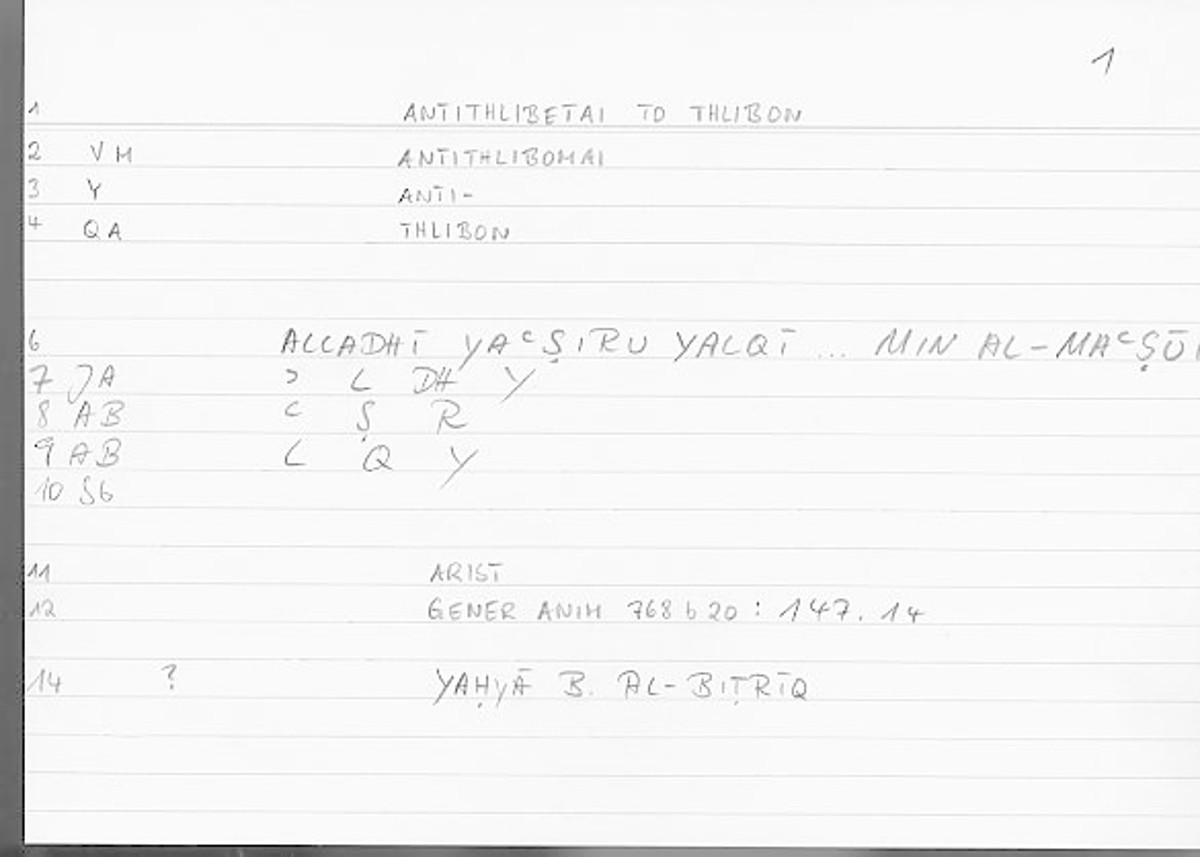 1
1 ANTITHLIBETAI TO THLIBON
2 VM ANTITHLIBOMAI
3 Y ANTI-
4 QA THLIBON
6 ALLADHĪ YAᶜṢIRU YALQĪ ... MIN AL-MAᶜṢŪ
7 JA ᵓ L DH Y
8 AB ᶜ Ṣ R
9 AB L Q Y
10 S6
11 ARIST
12 GENER ANIM 768 b 20 : 147.14
14 ? YAḤYĀ B. AL-BIṬRĪQ